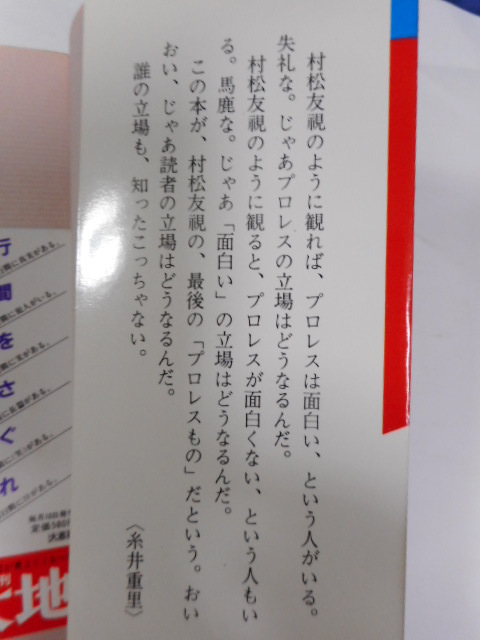 村松友視のように観れば、プロレスは面白い、という人がいる。
失礼な。じゃあプロレスの立場はどうなるんだ。
村松友視のように観ると、プロレスが面白くない、という人もい
る。馬鹿な。じゃあ「面白い」の立場はどうなるんだ。
この本が、村松友視の、最後の「プロレスもの」だという。おい
おい、じゃあ読者の立場はどうなるんだ。
誰の立場も、知ったこっちゃない。
〈糸井重里〉
行
間
を
さ
ぐ
れ